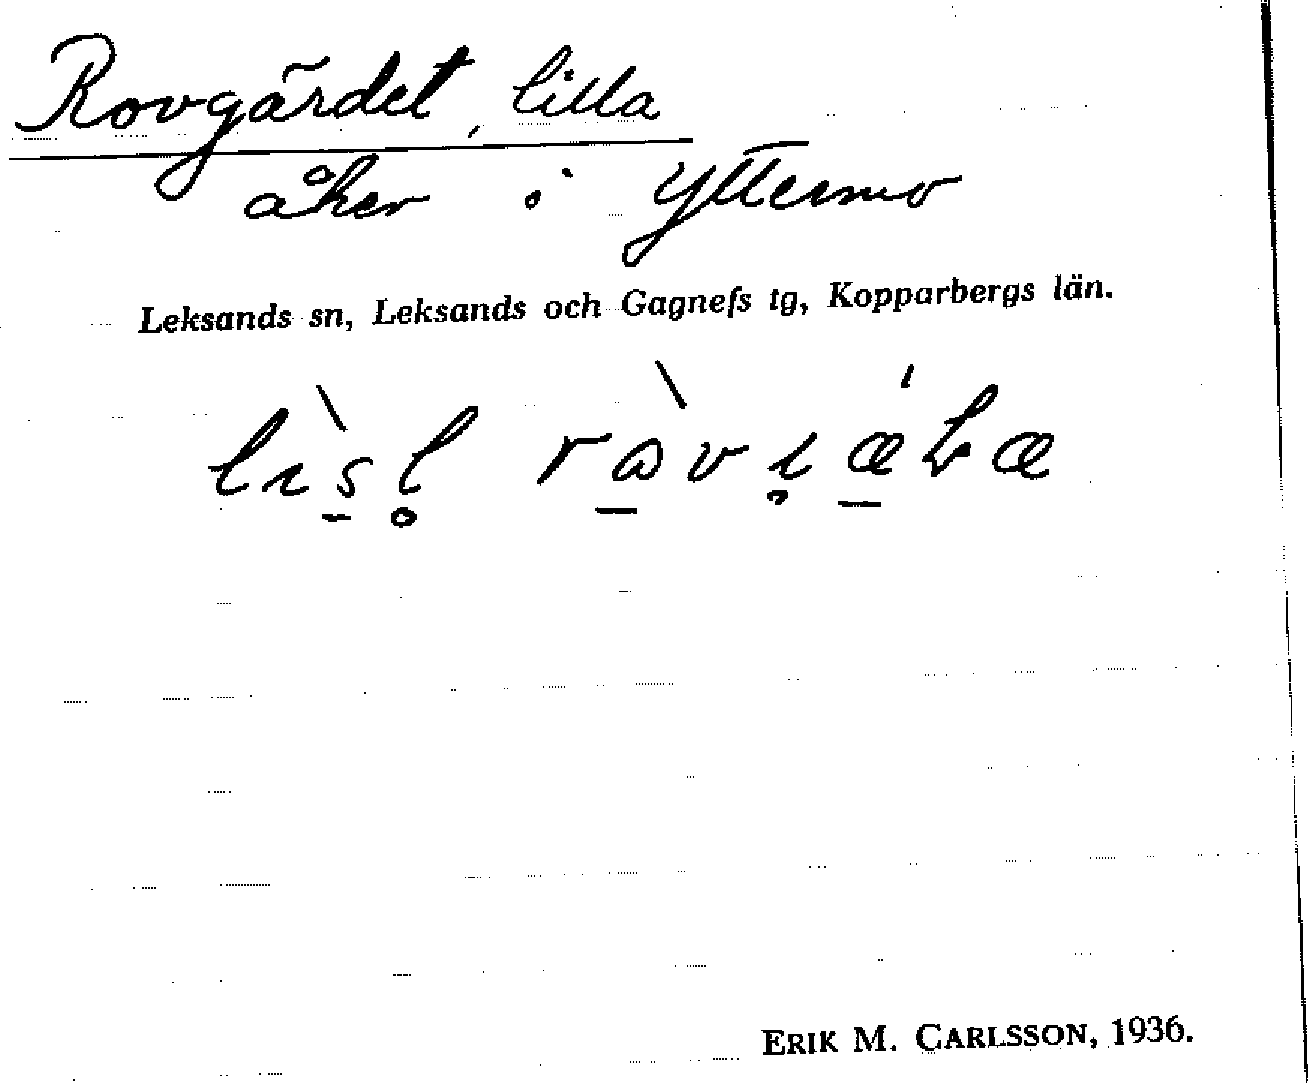 Rovgärdet, lilla
åker i Yttermo
Leksands sn, Leksands och Gagnefs tg, Kopparbergs län.
ERIK M. CARLSSON, 1936.